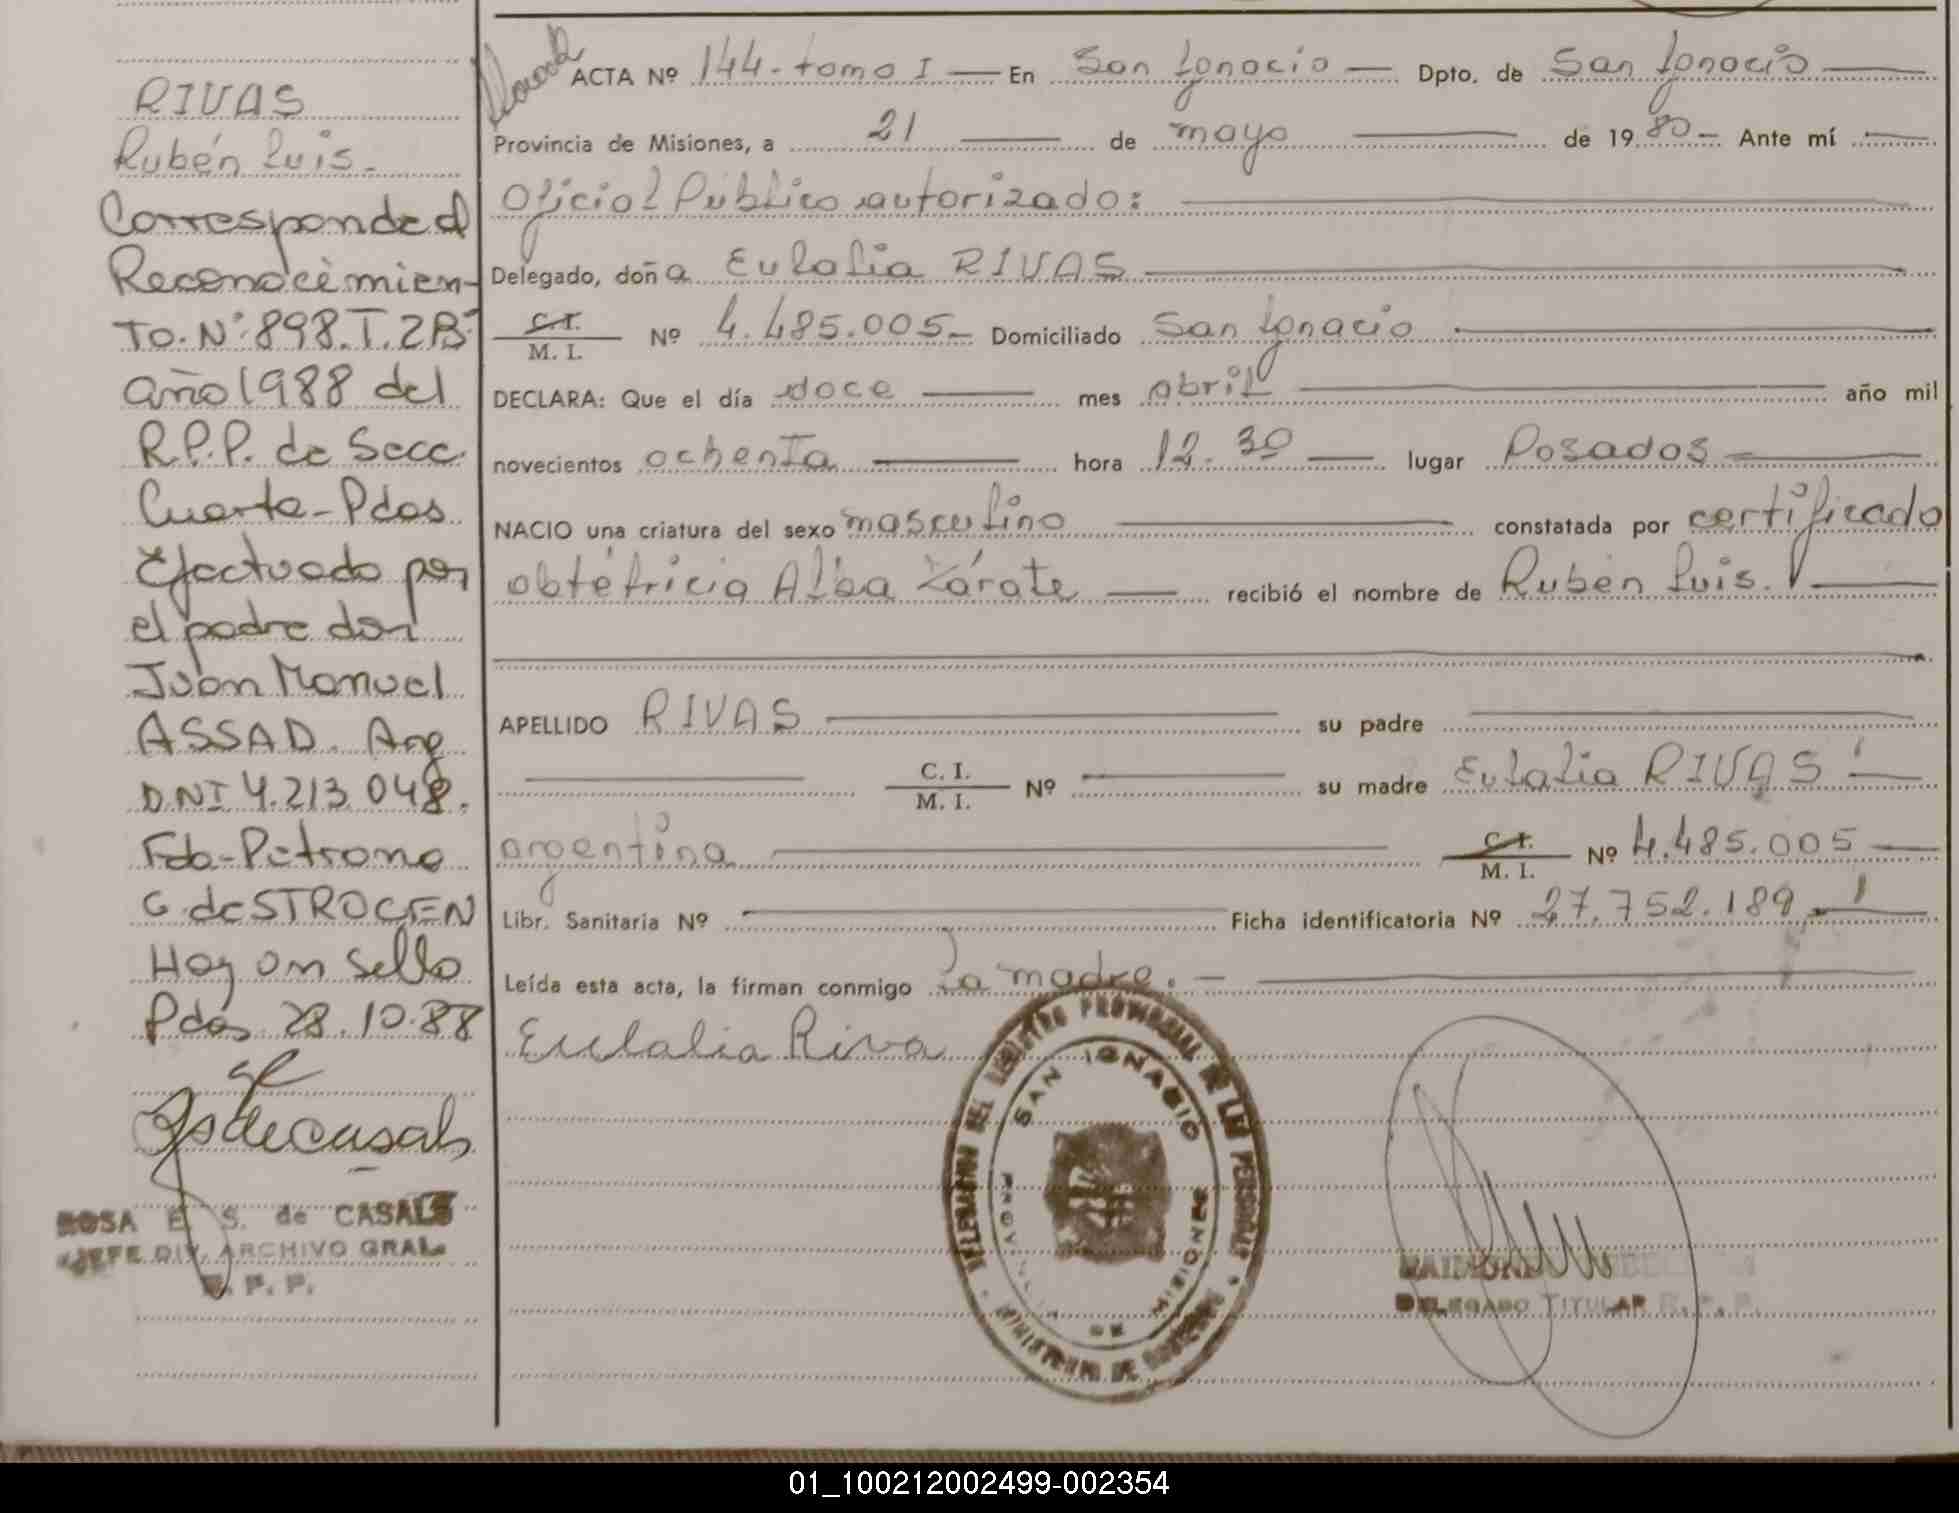 RIVAS
Rubén Luis.
Corresponde al
Reconocimien-
To. Nº 898. T. 2B
año 1988 del
R.P.P. de Secc.
Cuarta - Pdas
Efectuado por
el padre don
Juan Manuel
ASSAD. Arg
DNI 4.213.048.
Fdo - Petrona
G. de STROCEN
Hay un sello
Pdas 28.10.88
ROSA E. S. de CASALS
JEFE DIV. ARCHIVO GRAL.
R. P. P.
ACTA Nº 144 - tomo I — En San Ignacio — Dpto. de San Ignacio
Provincia de Misiones, a 21 de mayo de 1980 - Ante mí
Oficial Público autorizado:
Delegado, doña Eulalia RIVAS
C. I.
M. I. Nº 4.485.005 - Domiciliado San Ignacio
DECLARA: Que el día doce mes abril año mil
novecientos ochenta hora 12.30 lugar Posadas
NACIO una criatura del sexo masculino constatada por certificado
obtétricia Alba Zárate recibió el nombre de Rubén Luis.
APELLIDO RIVAS su padre
C. I.
M. I. Nº su madre Eulalia RIVAS
argentina C. I.
M. I. Nº 4.485.005
Libr. Sanitaria Nº Ficha identificatoria Nº 27.752.189
Leída esta acta, la firman conmigo la madre. -
Eulalia Riva
DELEGACION DEL REGISTRO PROVINCIAL DE LAS PERSONAS
SAN IGNACIO
PROVINCIA DE MISIONES
MINISTERIO DE GOBIERNO
DELEGADO TITULAR R. P. P.
01_100212002499-002354